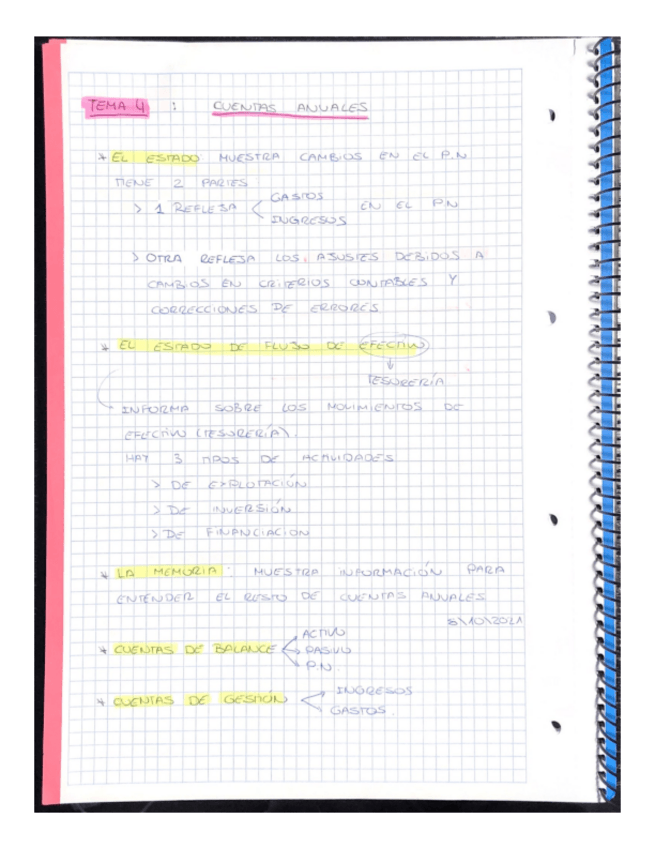 TEMA 4 : CUENTAS ANUALES
* EL ESTADO MUESTRA CAMBIOS EN EL P.N
TIENE 2 PARTES
> 1 REFLEJA < GASTOS INGRESOS EN EL P.N
> OTRA REFLEJA LOS AJUSTES DEBIDOS A
CAMBIOS EN CRITERIOS CONTABLES Y
CORRECCIONES DE ERRORES
* EL ESTADO DE FLUJO DE EFECTIVO
TESORERÍA
INFORMA SOBRE LOS MOVIMIENTOS DE
EFECTIVO (TESORERÍA).
HAY 3 TIPOS DE ACTIVIDADES
> DE EXPLOTACIÓN
> DE INVERSIÓN
> DE FINANCIACION
* LA MEMORIA : MUESTRA INFORMACIÓN PARA
ENTENDER EL RESTO DE CUENTAS ANUALES
8\10\2021
ACTIVO
* CUENTAS DE BALANCE PASIVO
P.N.
* CUENTAS DE GESTIÓN INGRESOS
GASTOS.